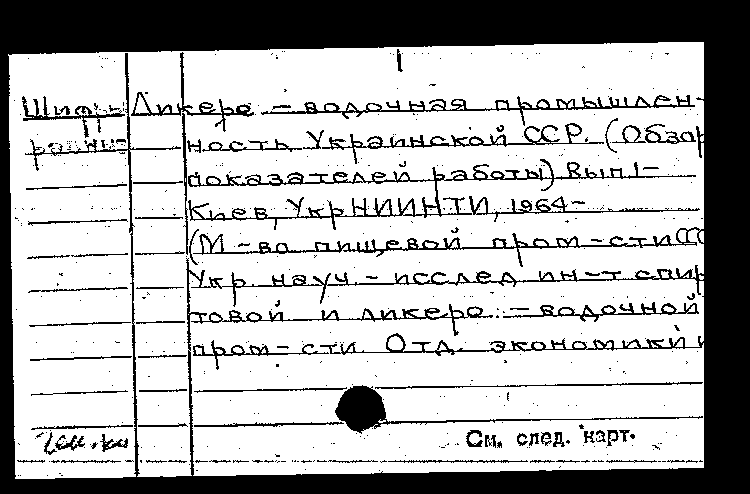 Шифры Ликеро-водочная промышлен-
ность Украинской ССР. (Обзор
показателей работы) Вып 1-
Киев, УкрНИИНТИ, 1964-
(М-во пищевой пром-сти СССР
Укр науч.-исслед ин-т спир
товой и ликеро-водочной
пром-сти. Отд. экономики и
См. след. карт.